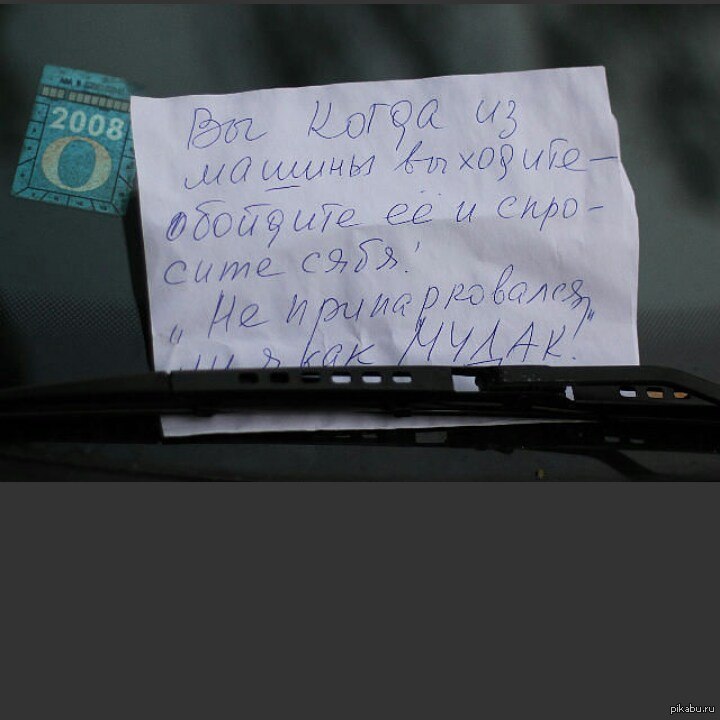 2008
О
Вы когда из
машины выходите-
обойдите её и спро-
сите сябя!
"Не припарковался
ли я как МУДАК!"
pikabu.ru